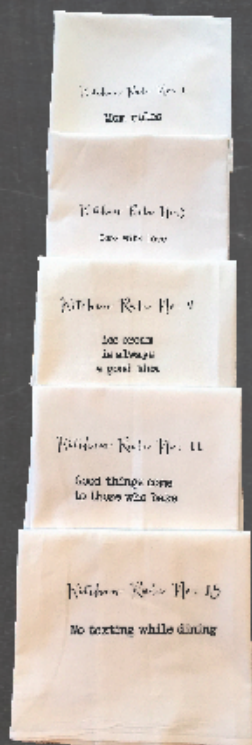 Kitchen Rule No. 1
Mom rules
Kitchen Rule No. 2
Kitchen Rule No.
ice cream
is always
a good idea
Kitchen Rule No. 11
Good things come
to those who bake
Kitchen Rule No. 15
No texting while dining